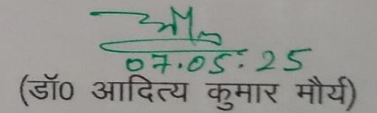 07.05.25
(डॉ0 आदित्य कुमार मौर्य)